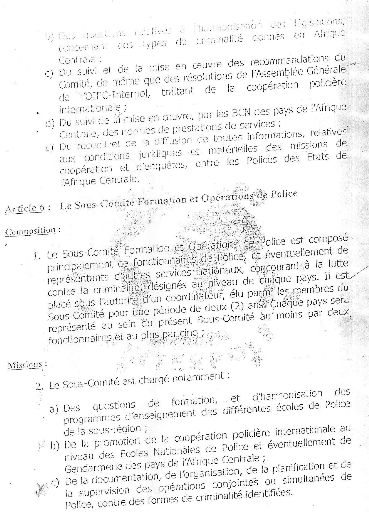 b) Des questions relatives à l'harmonisation des législations,
concernant des types de criminalité connus en Afrique
Centrale ;
c) Du suivi et de la mise en œuvre des recommandations du
Comité, de même que des résolutions de l'Assemblée Générale
de l'OIPC-Interpol, traitant de la coopération policière
internationale ;
d) Du suivi de la mise en œuvre, par les BCN des pays de l'Afrique
Centrale, des normes de prestations de services ;
e) Du recueil et de la diffusion de toutes informations, relatives
aux conditions juridiques et matérielles des missions de
coopération et d'enquêtes, entre les Polices des Etats de
l'Afrique Centrale.
Article 6 : Le Sous-Comité Formation et Opérations de Police
Composition :
1. Le Sous-Comité Formation et Opérations de Police est composé
principalement de fonctionnaires de Police, et éventuellement de
représentants d'autres services nationaux, concourant à la lutte
contre la criminalité, désignés au niveau de chaque pays. Il est
placé sous l'autorité d'un coordinateur, élu parmi les membres du
Sous-Comité pour une période de deux (2) ans. Chaque pays sera
représenté au sein du présent Sous-Comité au moins par deux
fonctionnaires et au plus par cinq ;
Missions :
2. Le Sous-Comité est chargé notamment :
a) Des questions de formation, et d'harmonisation des
programmes d'enseignement des différentes écoles de Police
de la sous-région ;
b) De la promotion de la coopération policière internationale au
niveau des Ecoles Nationales de Police et éventuellement de
Gendarmerie des pays de l'Afrique Centrale ;
c) De la documentation, de l'organisation, de la planification et de
la supervision des opérations conjointes ou simultanées de
Police, contre des formes de criminalité identifiées.